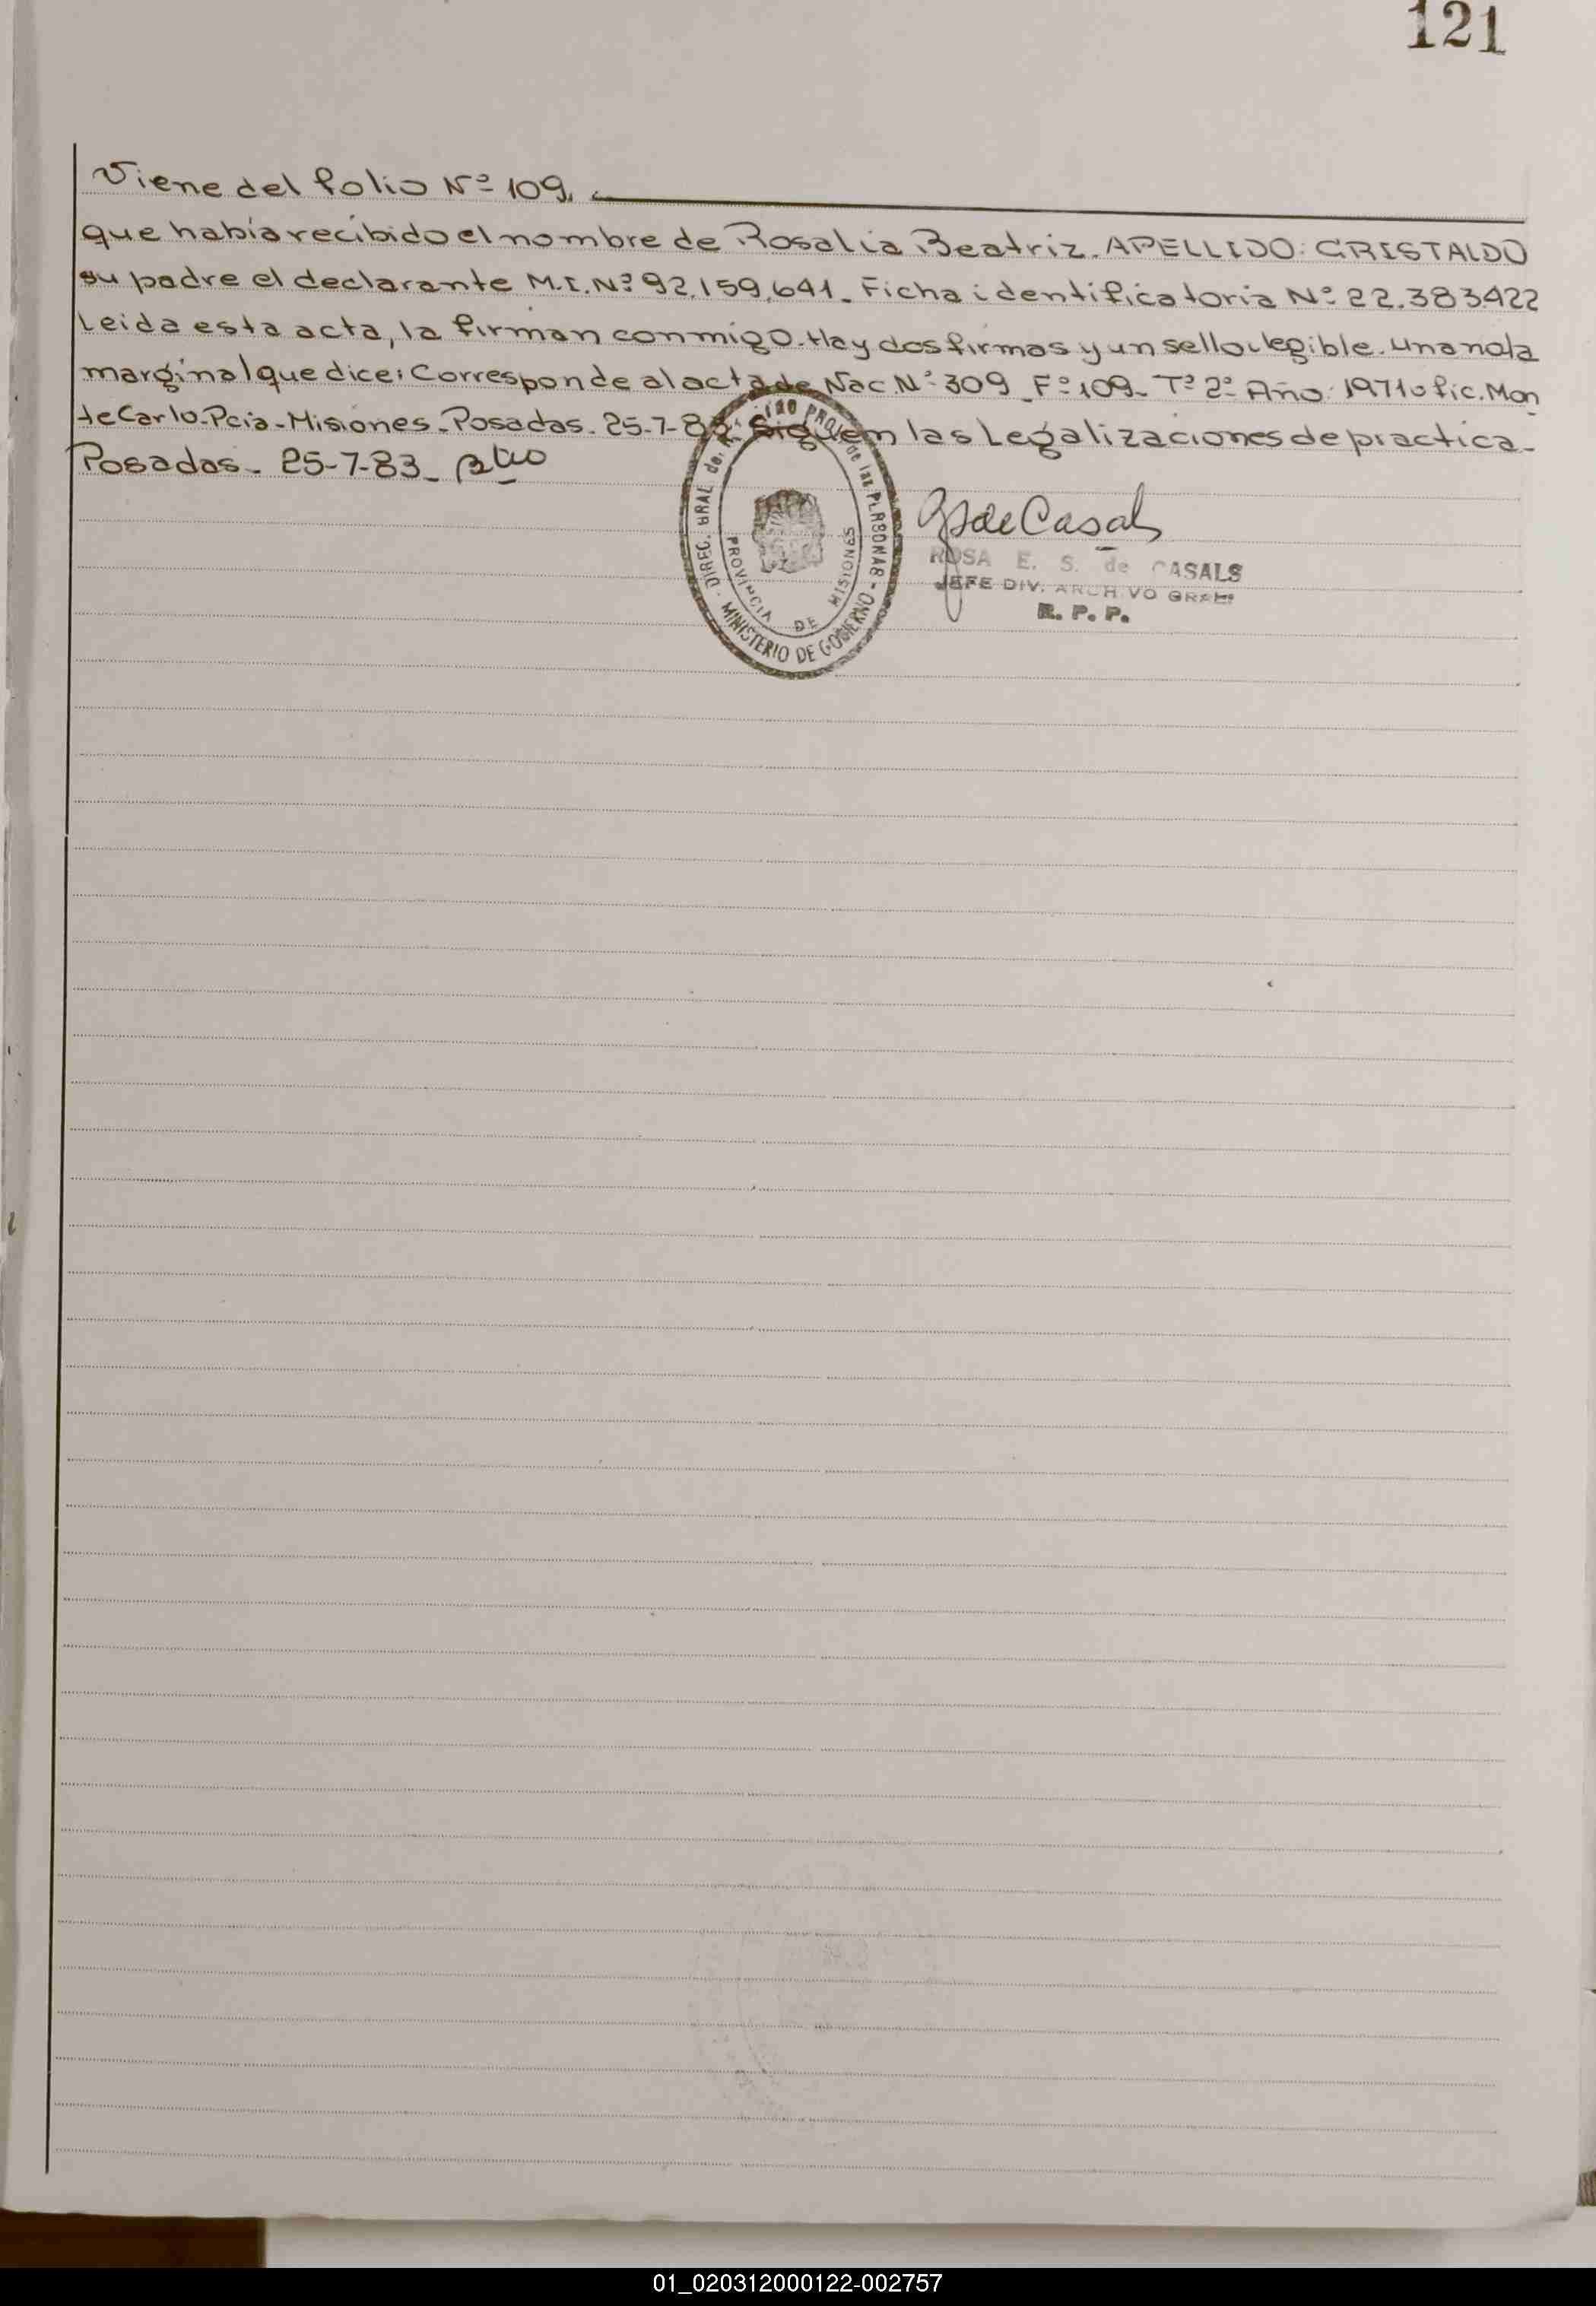 121
Viene del folio Nº 109.
que había recibido el nombre de Rosalia Beatriz. APELLIDO: CRISTALDO
su padre el declarante M.I.Nº 92.159.641. Ficha identificatoria Nº 22.383422
Leida esta acta, la firman conmigo. Hay dos firmas y un sello ilegible. una nota
marginal que dice: Corresponde al acta de Nac. Nº 309 Fº 109. Tº 2º Año: 1971 ofic. Mon
te Carlo. Pcia - Misiones. Posadas. 25-7-83. Siguen las Legalizaciones de practica.
Posadas. 25-7-83.
DIREC. GRAL de las PERSONAS - MINISTERIO DE GOBIERNO
PROVINCIA DE MISIONES
de Casals
ROSA E. S. de CASALS
JEFE DIV. ARCHIVO GRAL
R. P. P.
01_020312000122-002757